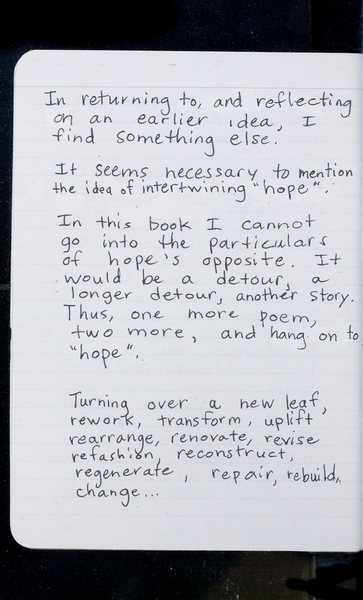 In returning to, and reflecting
on an earlier idea, I
find something else.
It seems necessary to mention
the idea of intertwining "hope".
In this book I cannot
go into the particulars
of hope's opposite. It
would be a detour, a
longer detour, another story.
Thus, one more poem,
two more, and hang on to
"hope".
Turning over a new leaf,
rework, transform, uplift
rearrange, renovate, revise
refashion, reconstruct,
regenerate, repair, rebuild,
change...